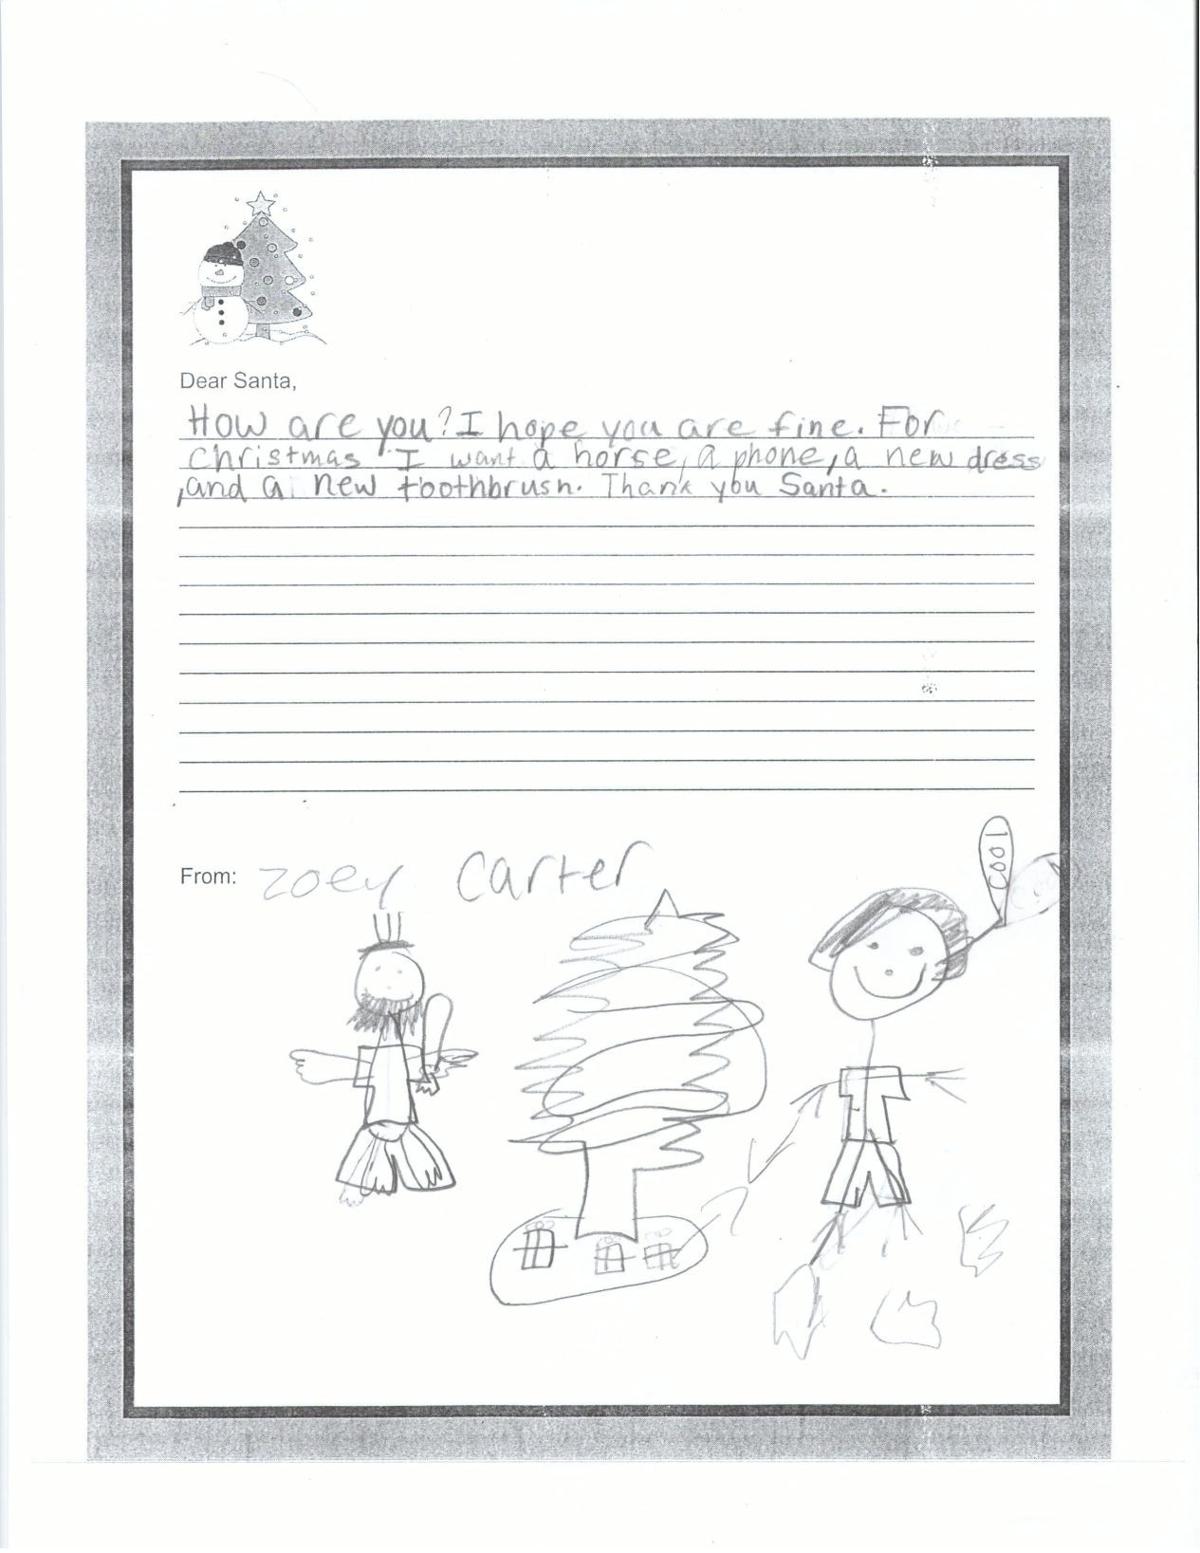 Dear Santa,
How are you? I hope you are fine. For
christmas I want a horse, a phone, a new dress
,and a new toothbrush. Thank you Santa.
From: zoey carter
cool